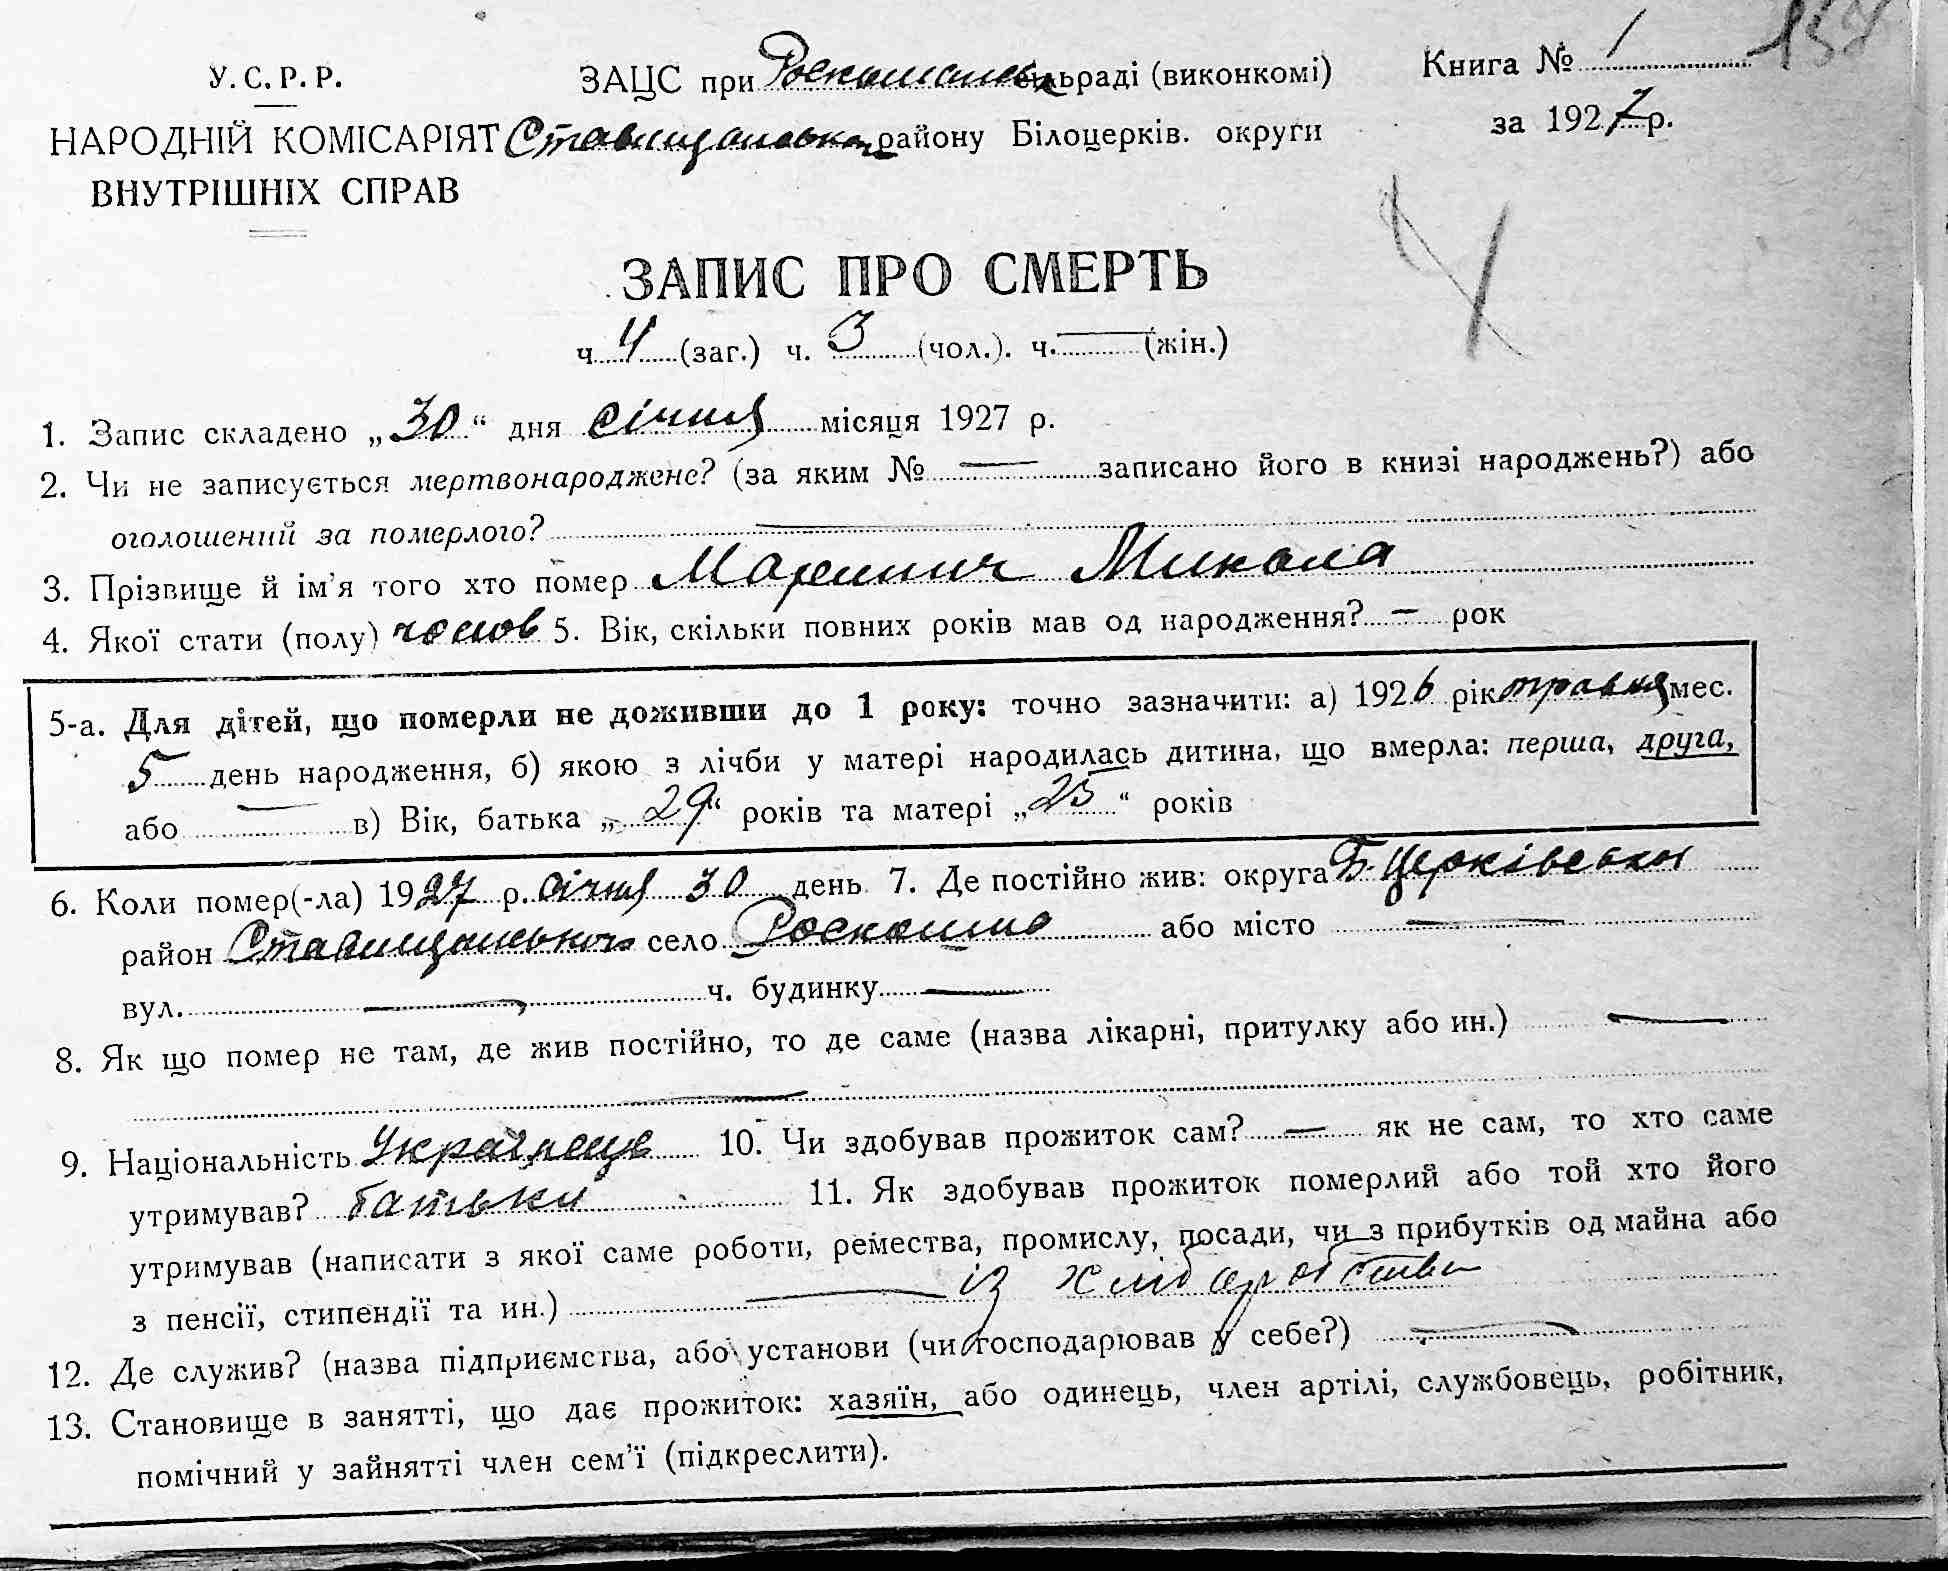 У.С.Р.Р.
НАРОДНІЙ КОМІСАРІЯТ
ВНУТРІШНІХ СПРАВ
ЗАЦС при сільраді (виконкомі)
Ставищанського району Білоцерків. округи
Книга № 1
за 1927 р.
ЗАПИС ПРО СМЕРТЬ
ч. 4 (заг.) ч. 3 (чол.). ч. — (жін.)
1. Запис складено „30“ дня січня місяця 1927 р.
2. Чи не записується мертвонароджене? (за яким № — записано його в книзі народжень?) або
оголошений за померлого? —
3. Прізвище й ім'я того хто помер Микола
4. Якої стати (полу) чолов 5. Вік, скільки повних років мав од народження? — рок
5-а. Для дітей, що померли не доживши до 1 року: точно зазначити: а) 1926 рік травня мес.
5 день народження, б) якою з лічби у матері народилась дитина, що вмерла: перша, друга,
або — в) Вік, батька „29“ років та матері „25“ років
6. Коли помер(-ла) 1927 р. січня 30 день 7. Де постійно жив: округа Б-Церківської
район Ставищанського село Роскошна або місто —
вул. — ч. будинку —
8. Як що помер не там, де жив постійно, то де саме (назва лікарні, притулку або ин.) —
—
9. Національність Українець 10. Чи здобував прожиток сам? — як не сам, то хто саме
утримував? батьки 11. Як здобував прожиток померлий або той хто його
утримував (написати з якої саме роботи, ремества, промислу, посади, чи з прибутків од майна або
з пенсії, стипендії та ин.) — із хліборобства
12. Де служив? (назва підприємства, або установи (чи господарював у себе?) —
13. Становище в занятті, що дає прожиток: хазяїн, або одинець, член артілі, службовець, робітник,
помічний у зайнятті член сем'ї (підкреслити).